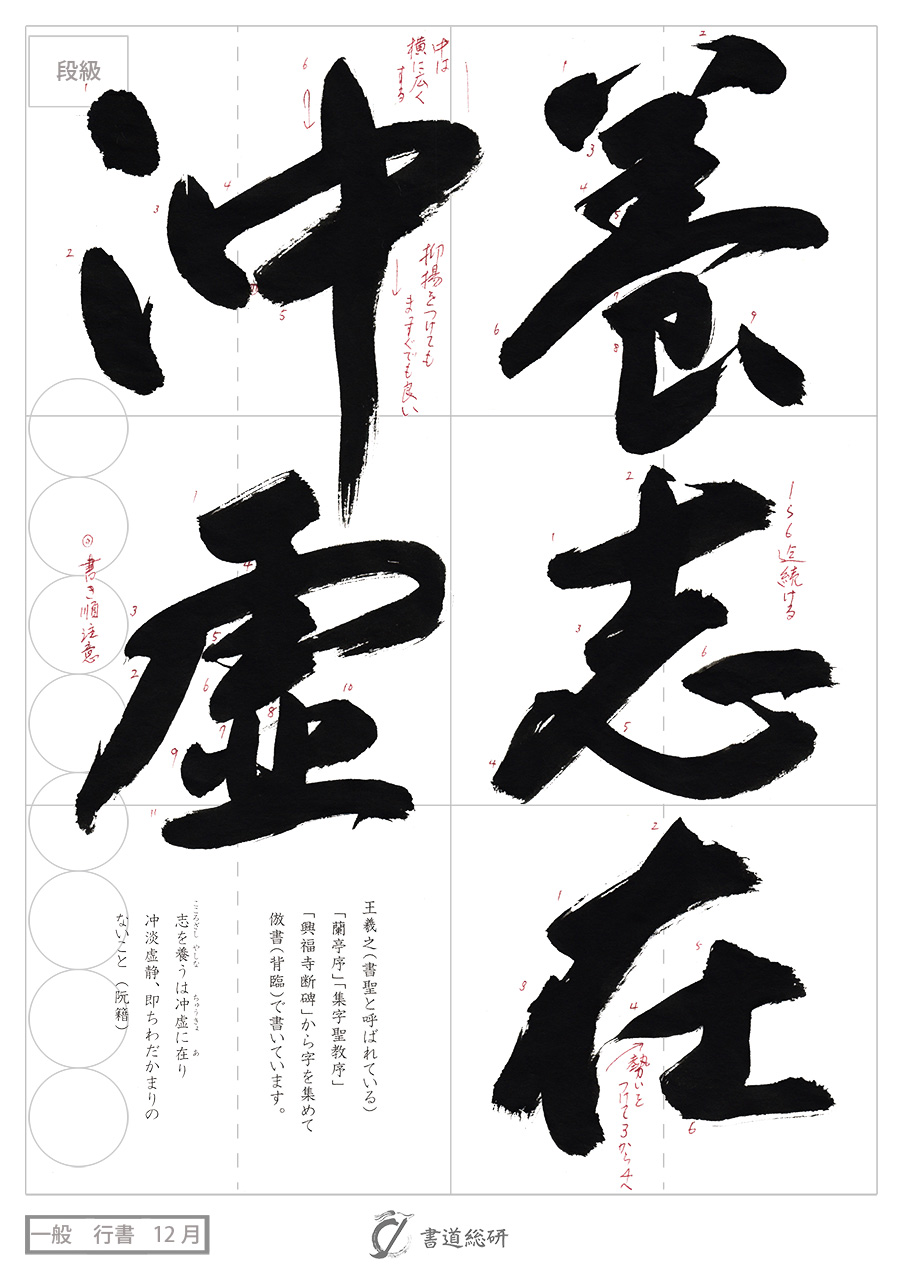 養志在
冲虚
中は
横に広く
する
抑揚をつけても
まっすぐでも良い
1から6迄続ける
勢いを
つけて3から4へ
書き順注意
段級
王羲之(書聖と呼ばれている)
「蘭亭序」「集字聖教序」
「興福寺断碑」から字を集めて
倣書(背臨)で書いています。
こころざし やしな ちゅうきょ あ
志を養うは冲虚に在り
冲淡虚静、即ちわだかまりの
ないこと(阮籍)
一般 行書 12月
書道総研